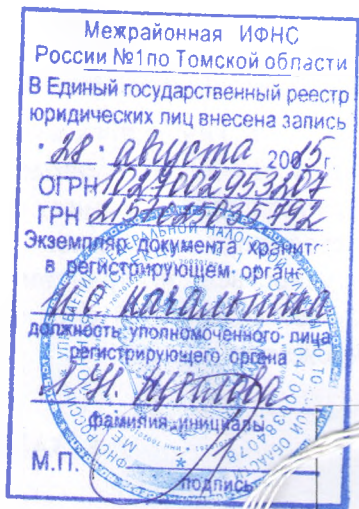 Межрайонная ИФНС
России №1 по Томской области
В Единый государственный реестр
юридических лиц внесена запись
"28" августа 2015г.
ОГРН 1027002953207
ГРН
Экземпляр документа хранится
в регистрирующем органе
ио начальника
должность уполномоченного лица
регистрирующего органа
фамилия, инициалы
М.П.
подпись